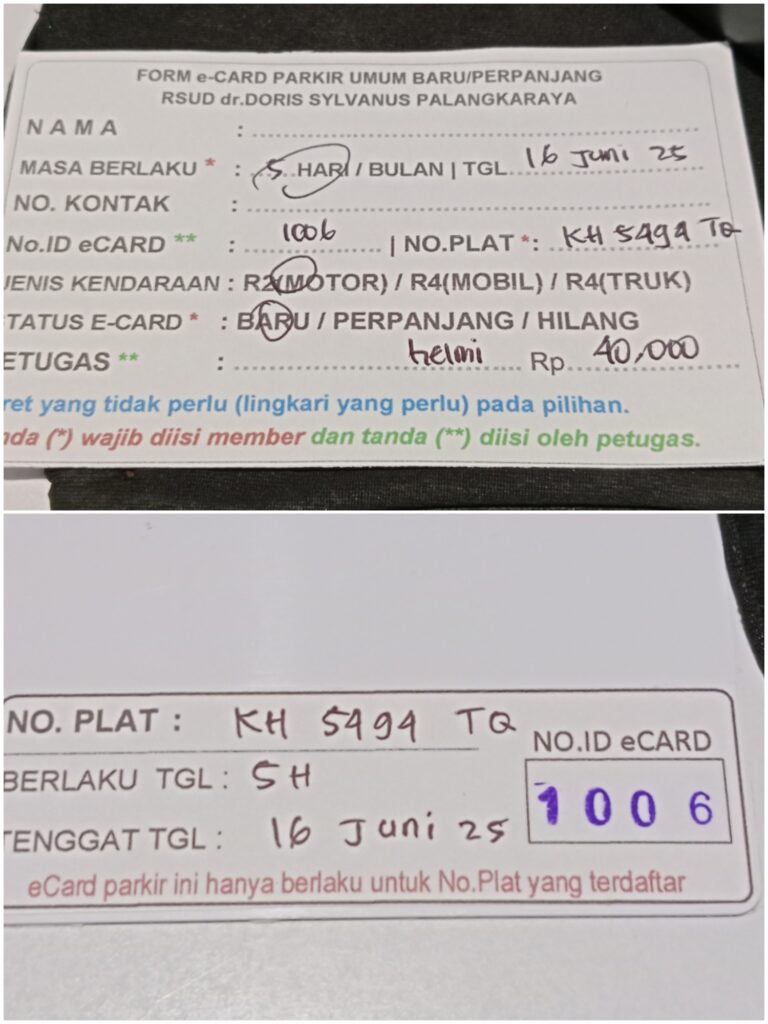 FORM e-CARD PARKIR UMUM BARU/PERPANJANG
RSUD dr.DORIS SYLVANUS PALANGKARAYA
NAMA :
MASA BERLAKU * : 5 HARI / BULAN | TGL. 16 Juni 25
NO. KONTAK :
No.ID eCARD ** : 1006 | NO.PLAT *: KH 5494 TQ
JENIS KENDARAAN : R2(MOTOR) / R4(MOBIL) / R4(TRUK)
TATUS E-CARD * : BARU / PERPANJANG / HILANG
ETUGAS ** : helmi Rp 40,000
ret yang tidak perlu (lingkari yang perlu) pada pilihan.
nda (*) wajib diisi member dan tanda (**) diisi oleh petugas.
NO. PLAT : KH 5494 TQ
NO.ID eCARD
BERLAKU TGL : 5H
1006
TENGGAT TGL : 16 Juni 25
eCard parkir ini hanya berlaku untuk No.Plat yang terdaftar